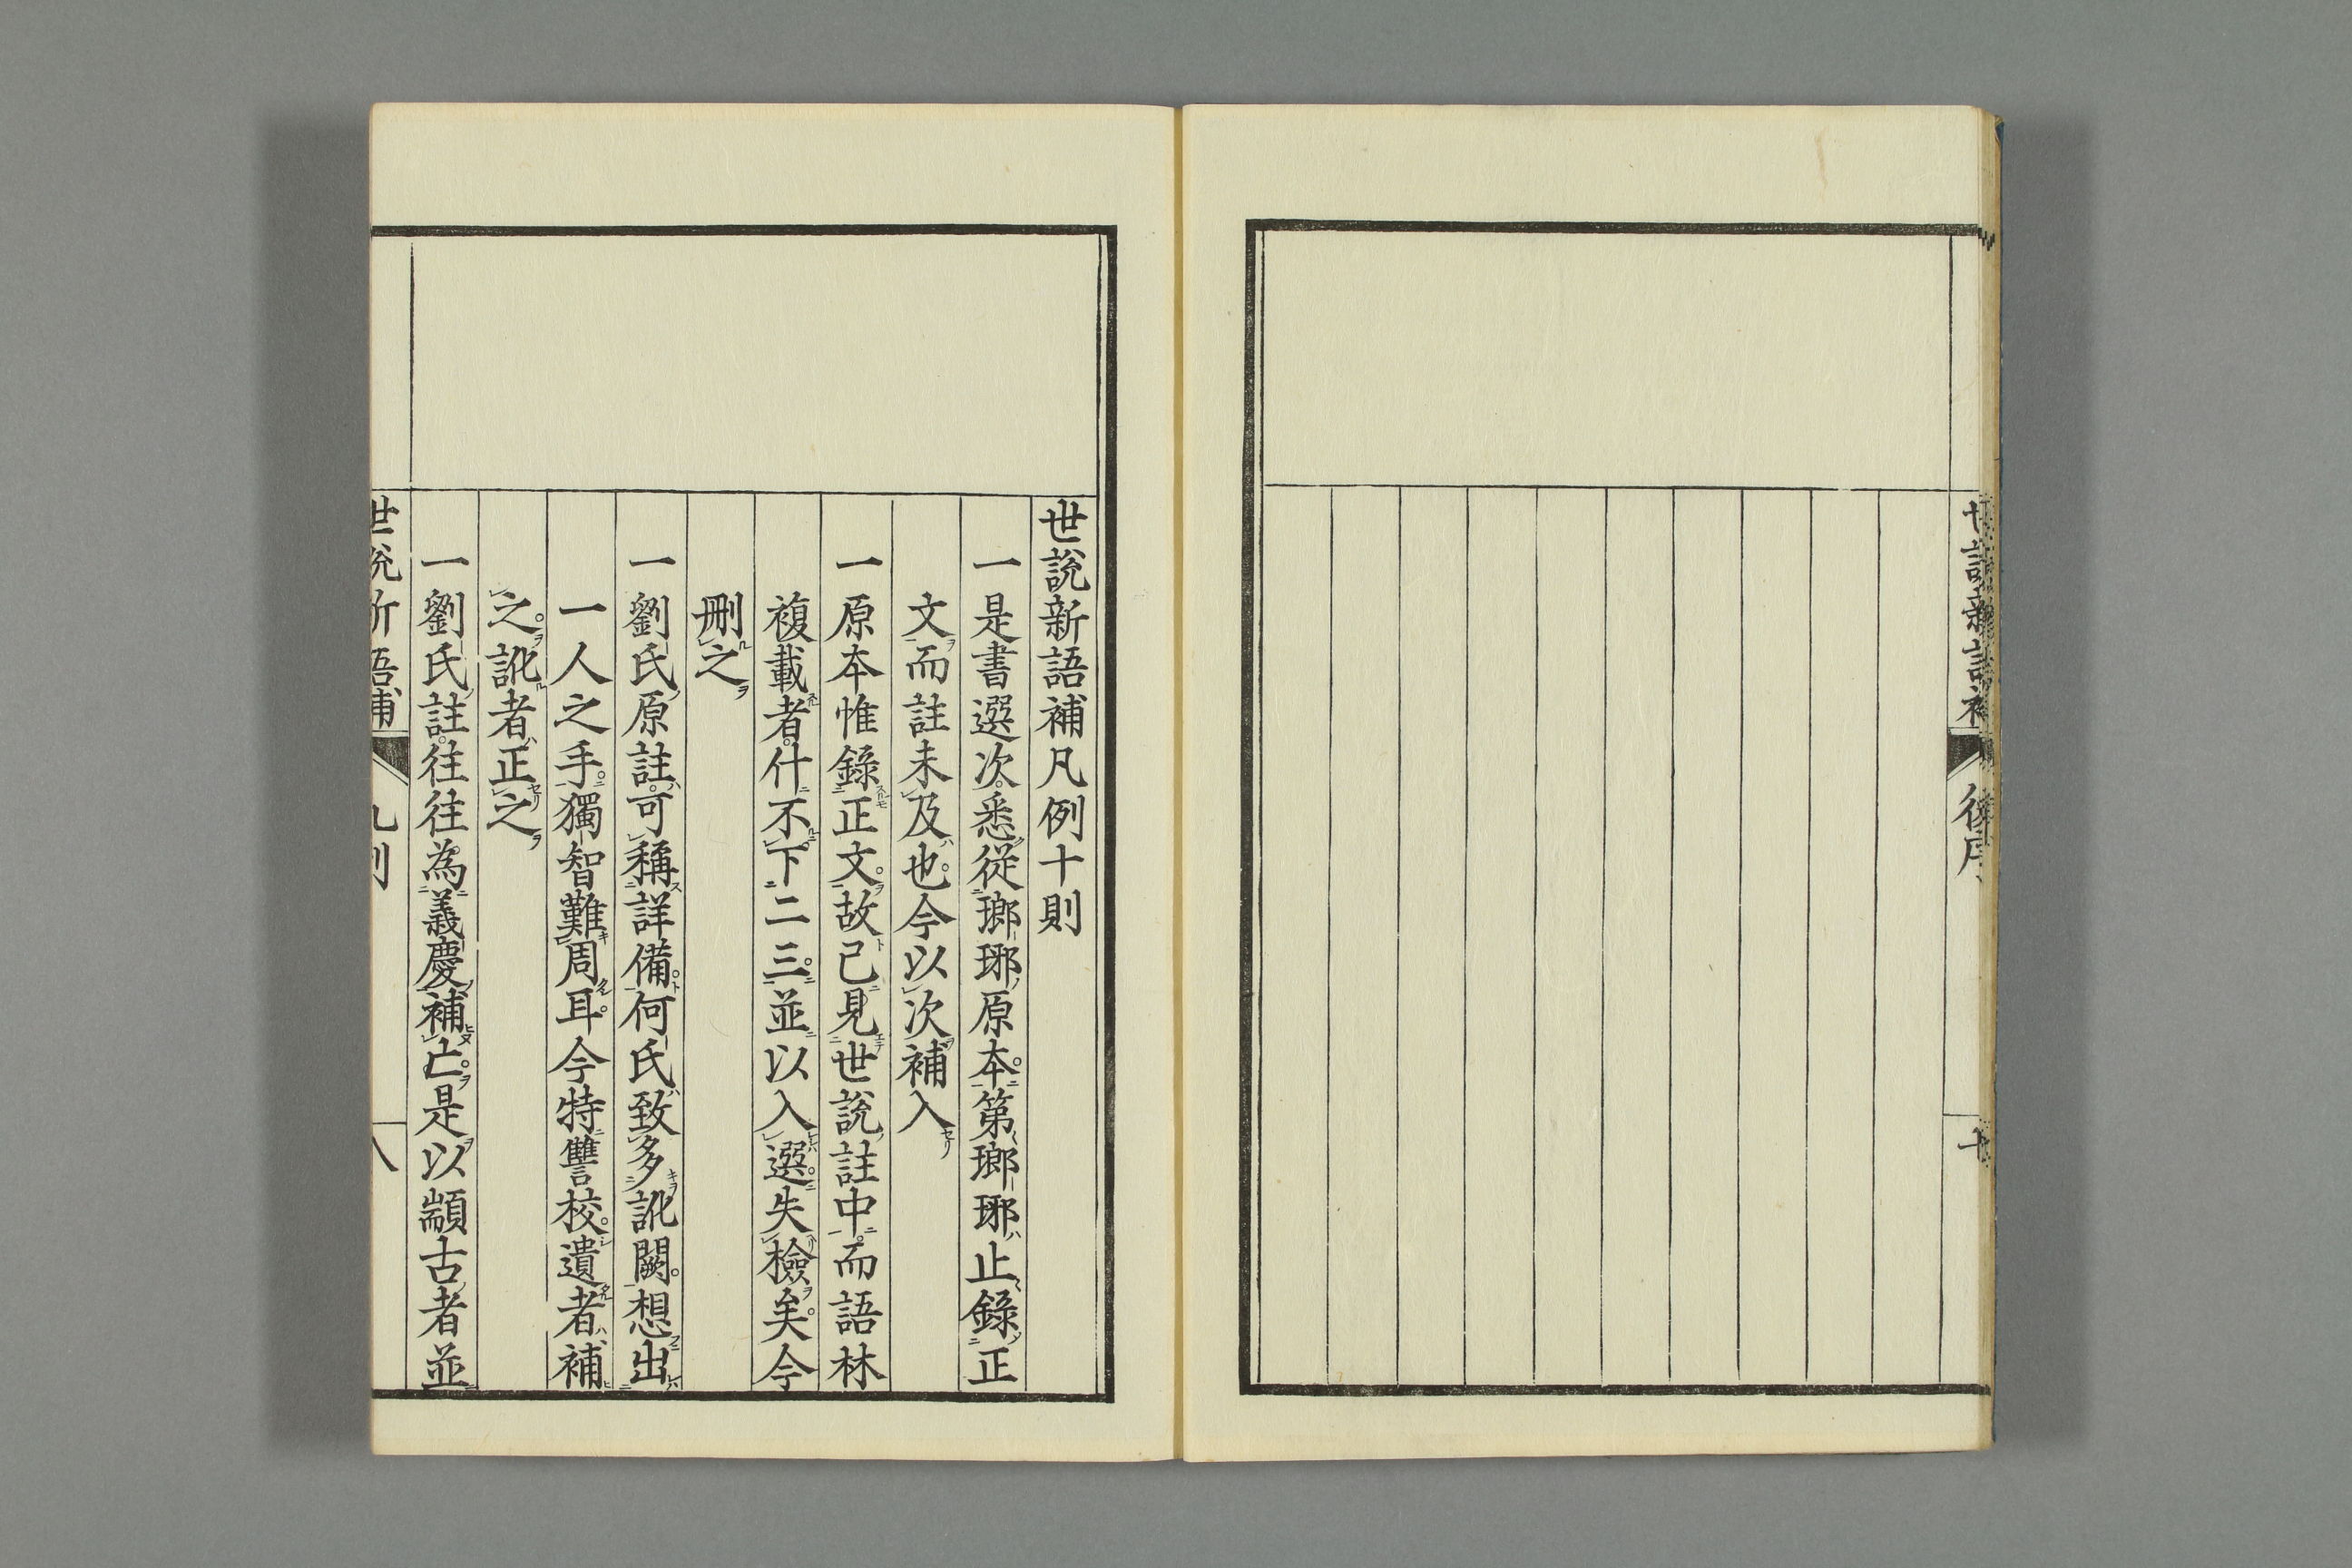 世說新語補凡例十則
一是書選次悉從瑯琊原本第瑯琊止錄正
文而註未及也今以次補入
一原本惟錄正文故已見世說註中而語林
複載者什不下二三並以入選失檢矣今
刪之
一劉氏原註可稱詳備何氏致多訛闕想出
一人之手獨智難周耳今特讐校遺者補
之訛者正之
一劉氏註往往為義慶補亡是以顓古者並